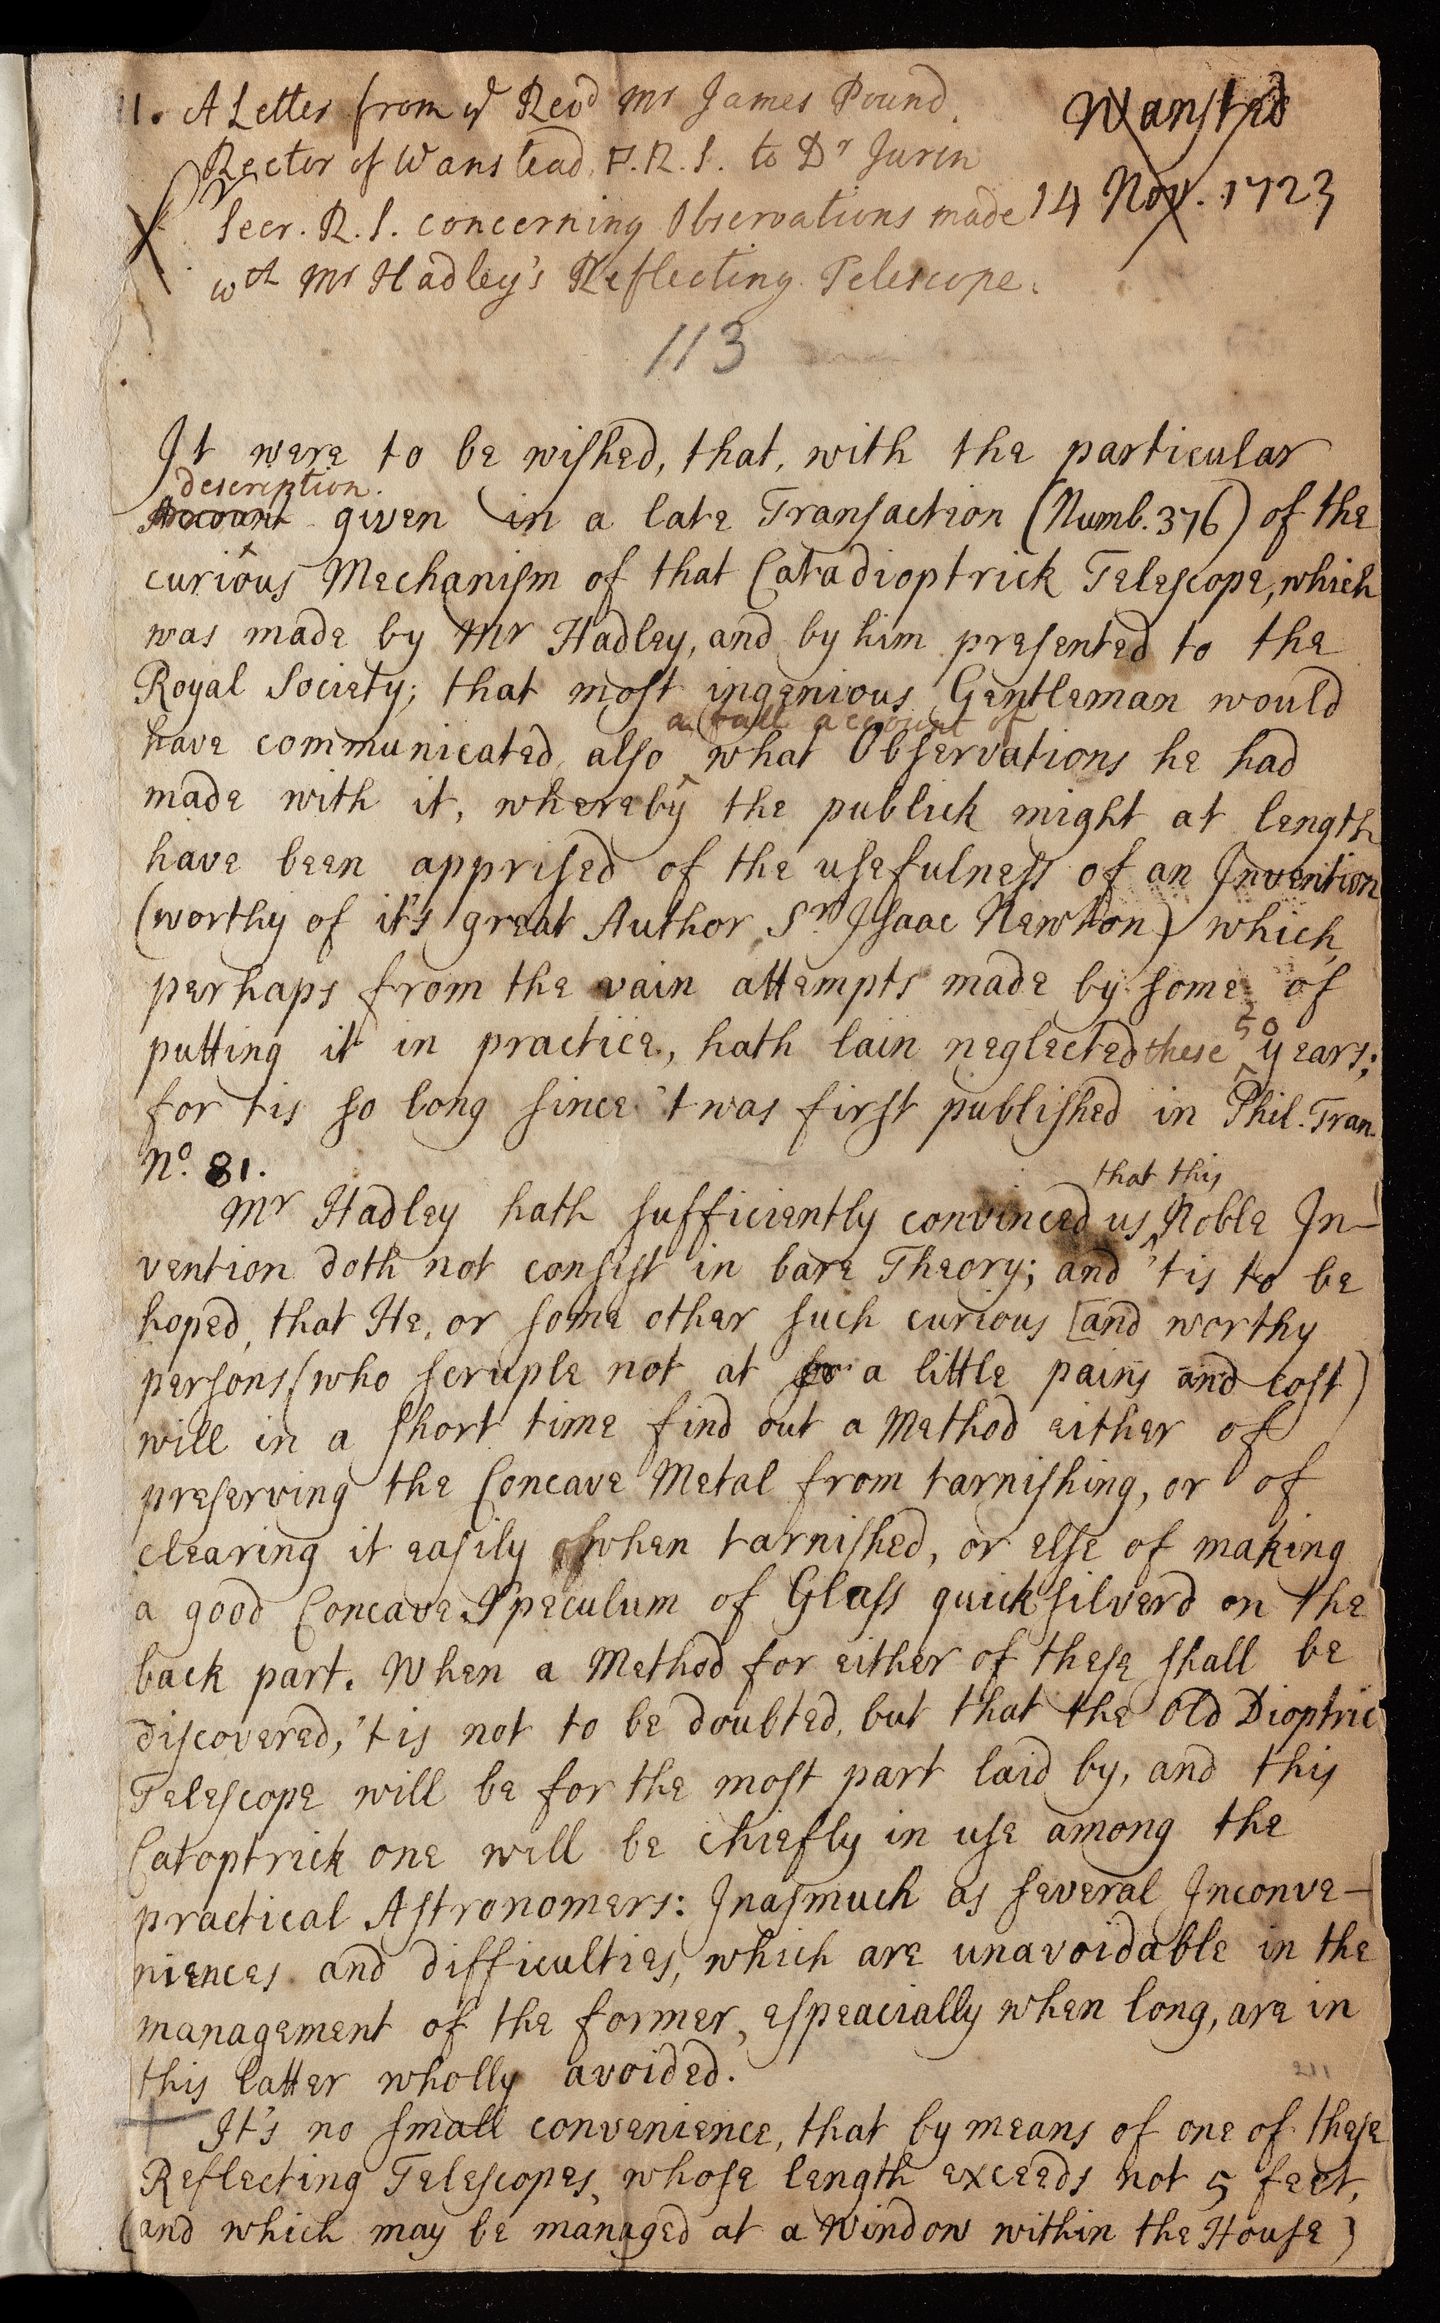 11. A Letter from ye Revd Mr James Pound
Rector of Wanstead, F.R.S. to Dr Jurin
Secr. R.S. concerning Observations made
wth Mr Hadley's Reflecting Telescope.
Wansted
14 Nov. 1723
113
It were to be wished, that, with the particular
description.
Account given in a late Transaction (Numb. 376) of the
curious Mechanism of that Catadioptrick Telescope, which
was made by Mr Hadley, and by him presented to the
Royal Society; that most ingenious Gentleman would
a full account of
have communicated also what Observations he had
made with it, whereby the publick might at length
have been apprised of the usefulness of an Invention
(worthy of it's great Author Sr Isaac Newton) which,
perhaps from the vain attempts made by some of
50
putting it in practice, hath lain neglected these years;
for tis so long since 't was first published in Phil. Tran.
No. 81.
that this
Mr Hadley hath sufficiently convinced us Noble In-
vention doth not consist in bare Theory; and 'tis to be
hoped, that He, or some other such curious [and worthy
persons (who scruple not at for a little pains and cost)
will in a short time find out a Method either of
preserving the Concave Metal from tarnishing, or of
clearing it easily when tarnished, or else of making
a good Concave Speculum of Glass quicksilverd on the
back part. When a Method for either of these shall be
discovered, 't is not to be doubted, but that the old Dioptric
Telescope will be for the most part laid by, and this
Catoptrick one will be chiefly in use among the
practical Astronomers: Inasmuch as several Inconve-
niences and difficulties, which are unavoidable in the
management of the former, espeacially when long, are in
this latter wholly avoided.
It's no small convenience, that by means of one of these
Reflecting Telescopes, whose length exceeds not 5 feet,
(and which may be managed at a Window within the House)